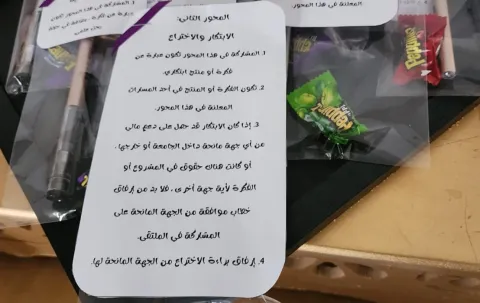 المحور الثاني:
الابتكار والاختراع
1. المشاركة في هذا المحور تكون عبارة عن
فكرة أو منتج ابتكاري.
2. تكون الفكرة أو المنتج في أحد المسارات
المعلنة في هذا المحور.
3. إذا كان الابتكار قد حصل على دعم مالي
من أي جهة مانحة داخل الجامعة أو خارجها،
أو كانت هناك حقوق في المشروع أو
الفكرة لأية جهة أخرى، فلا بد من إرفاق
خطاب موافقة من الجهة المانحة على
المشاركة في الملتقى.
4. إرفاق براءة الاختراع من الجهة المانحة لها.
1. المشاركة في هذا المحور تكون
المعلنة في هذا المحور.